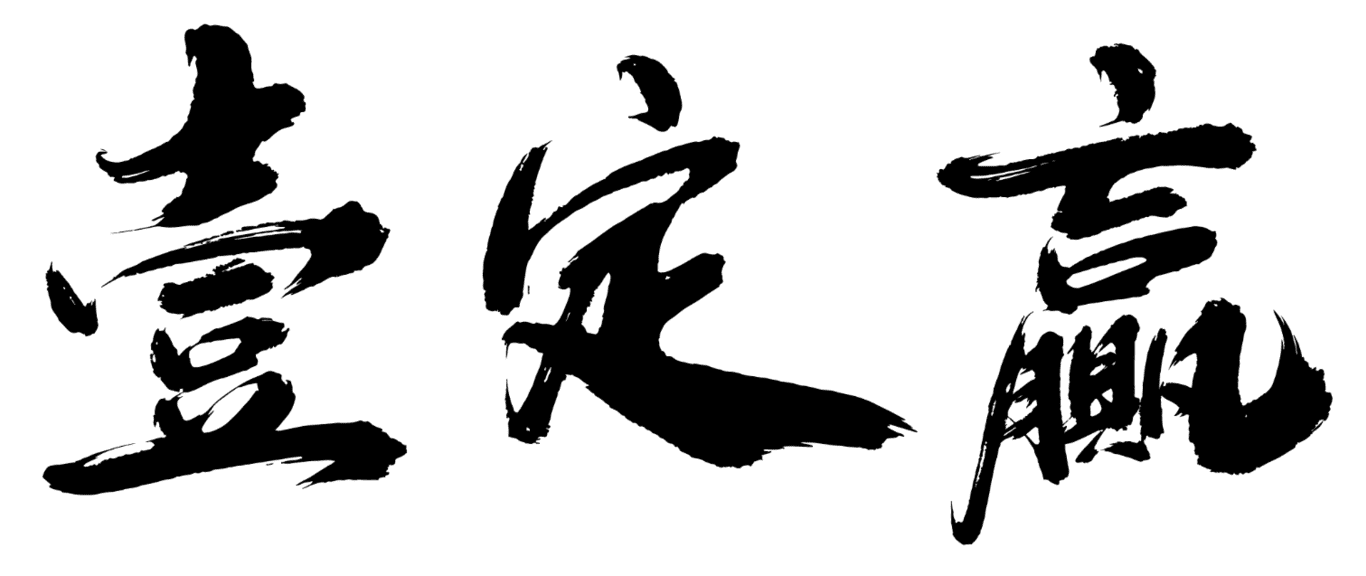 壹定赢